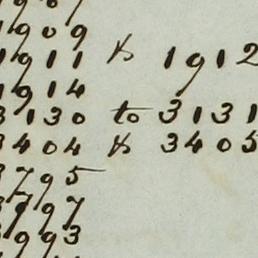 1909
1911 & 1912
1914
3130 to 3131
3404 & 3405
3795
3797
3993